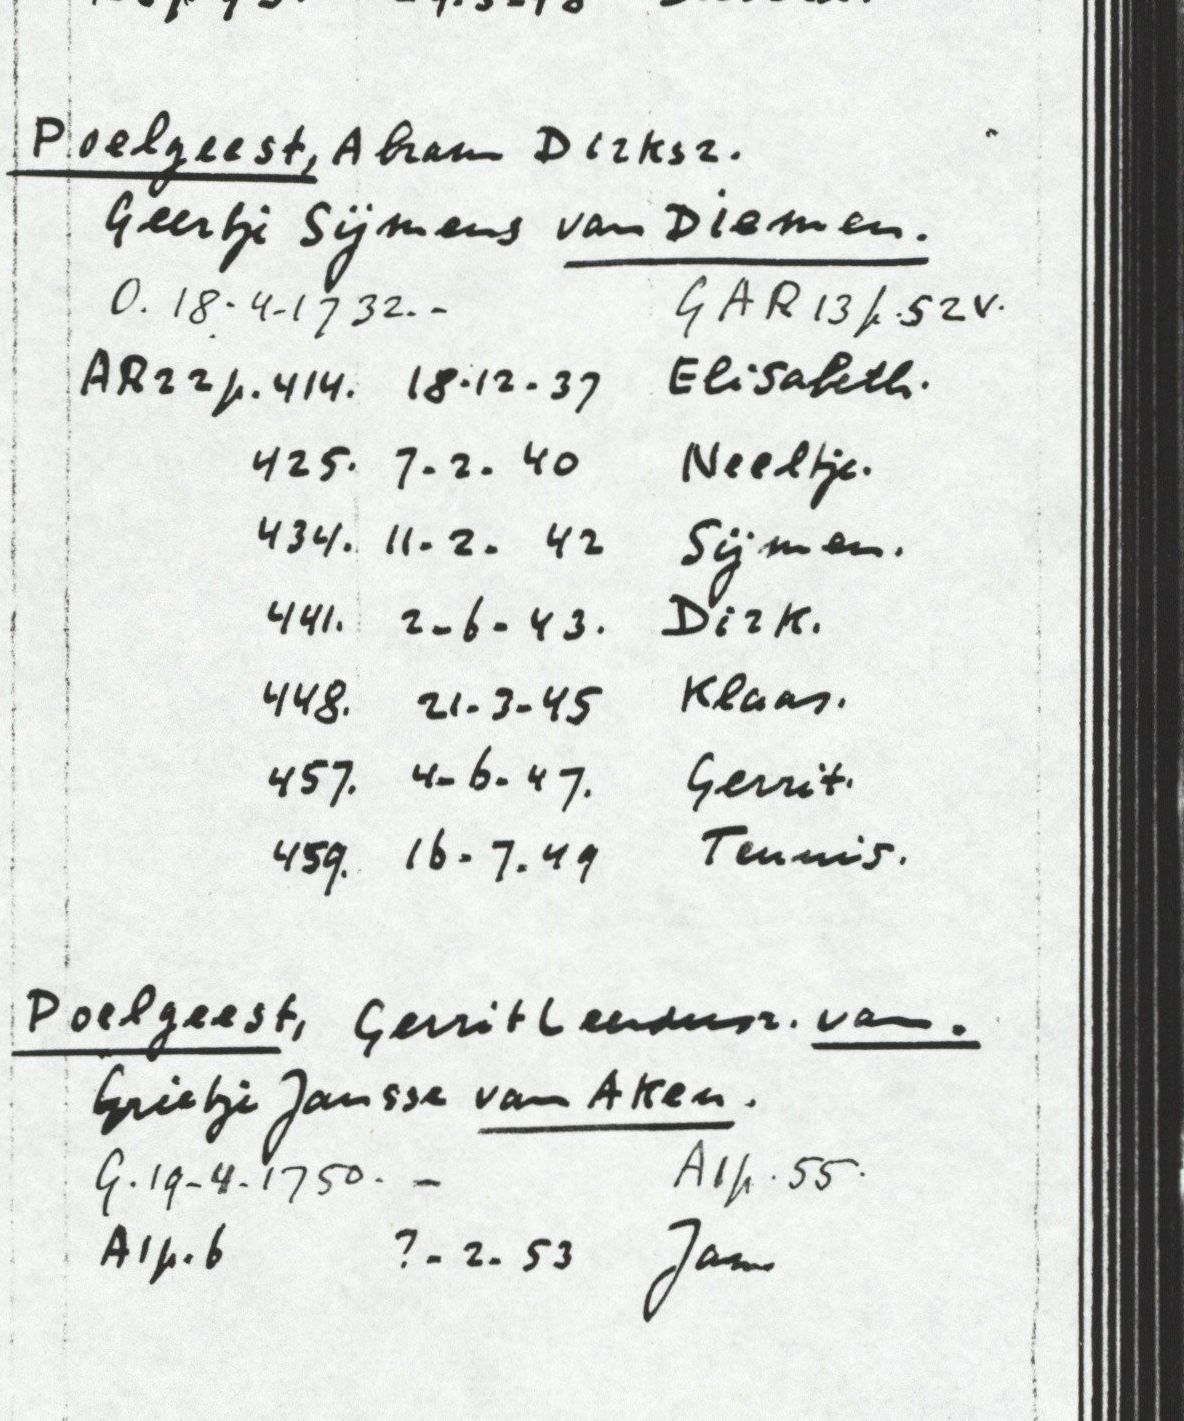 Poelgeest, Abram Dirksz.
Geertje Sijmens van Diemen.
O. 18-4-1732. - GAR 13 p. 52 v.
AR 22 p. 414. 18-12-37 Elisabeth.
425. 7-2-40 Neeltje.
434. 11-2-42 Sijmen.
441. 2-6-43. Dirk.
448. 21-3-45 Klaas.
457. 4-6-47. Gerrit.
459. 16-7.49 Teunis.
Poelgeest, Gerrit Leendersz. van.
Grietje Jansse van Aken.
G. 19-4-1750. - A1 p. 55.
A1 p. 6 ?-2-53 Jan